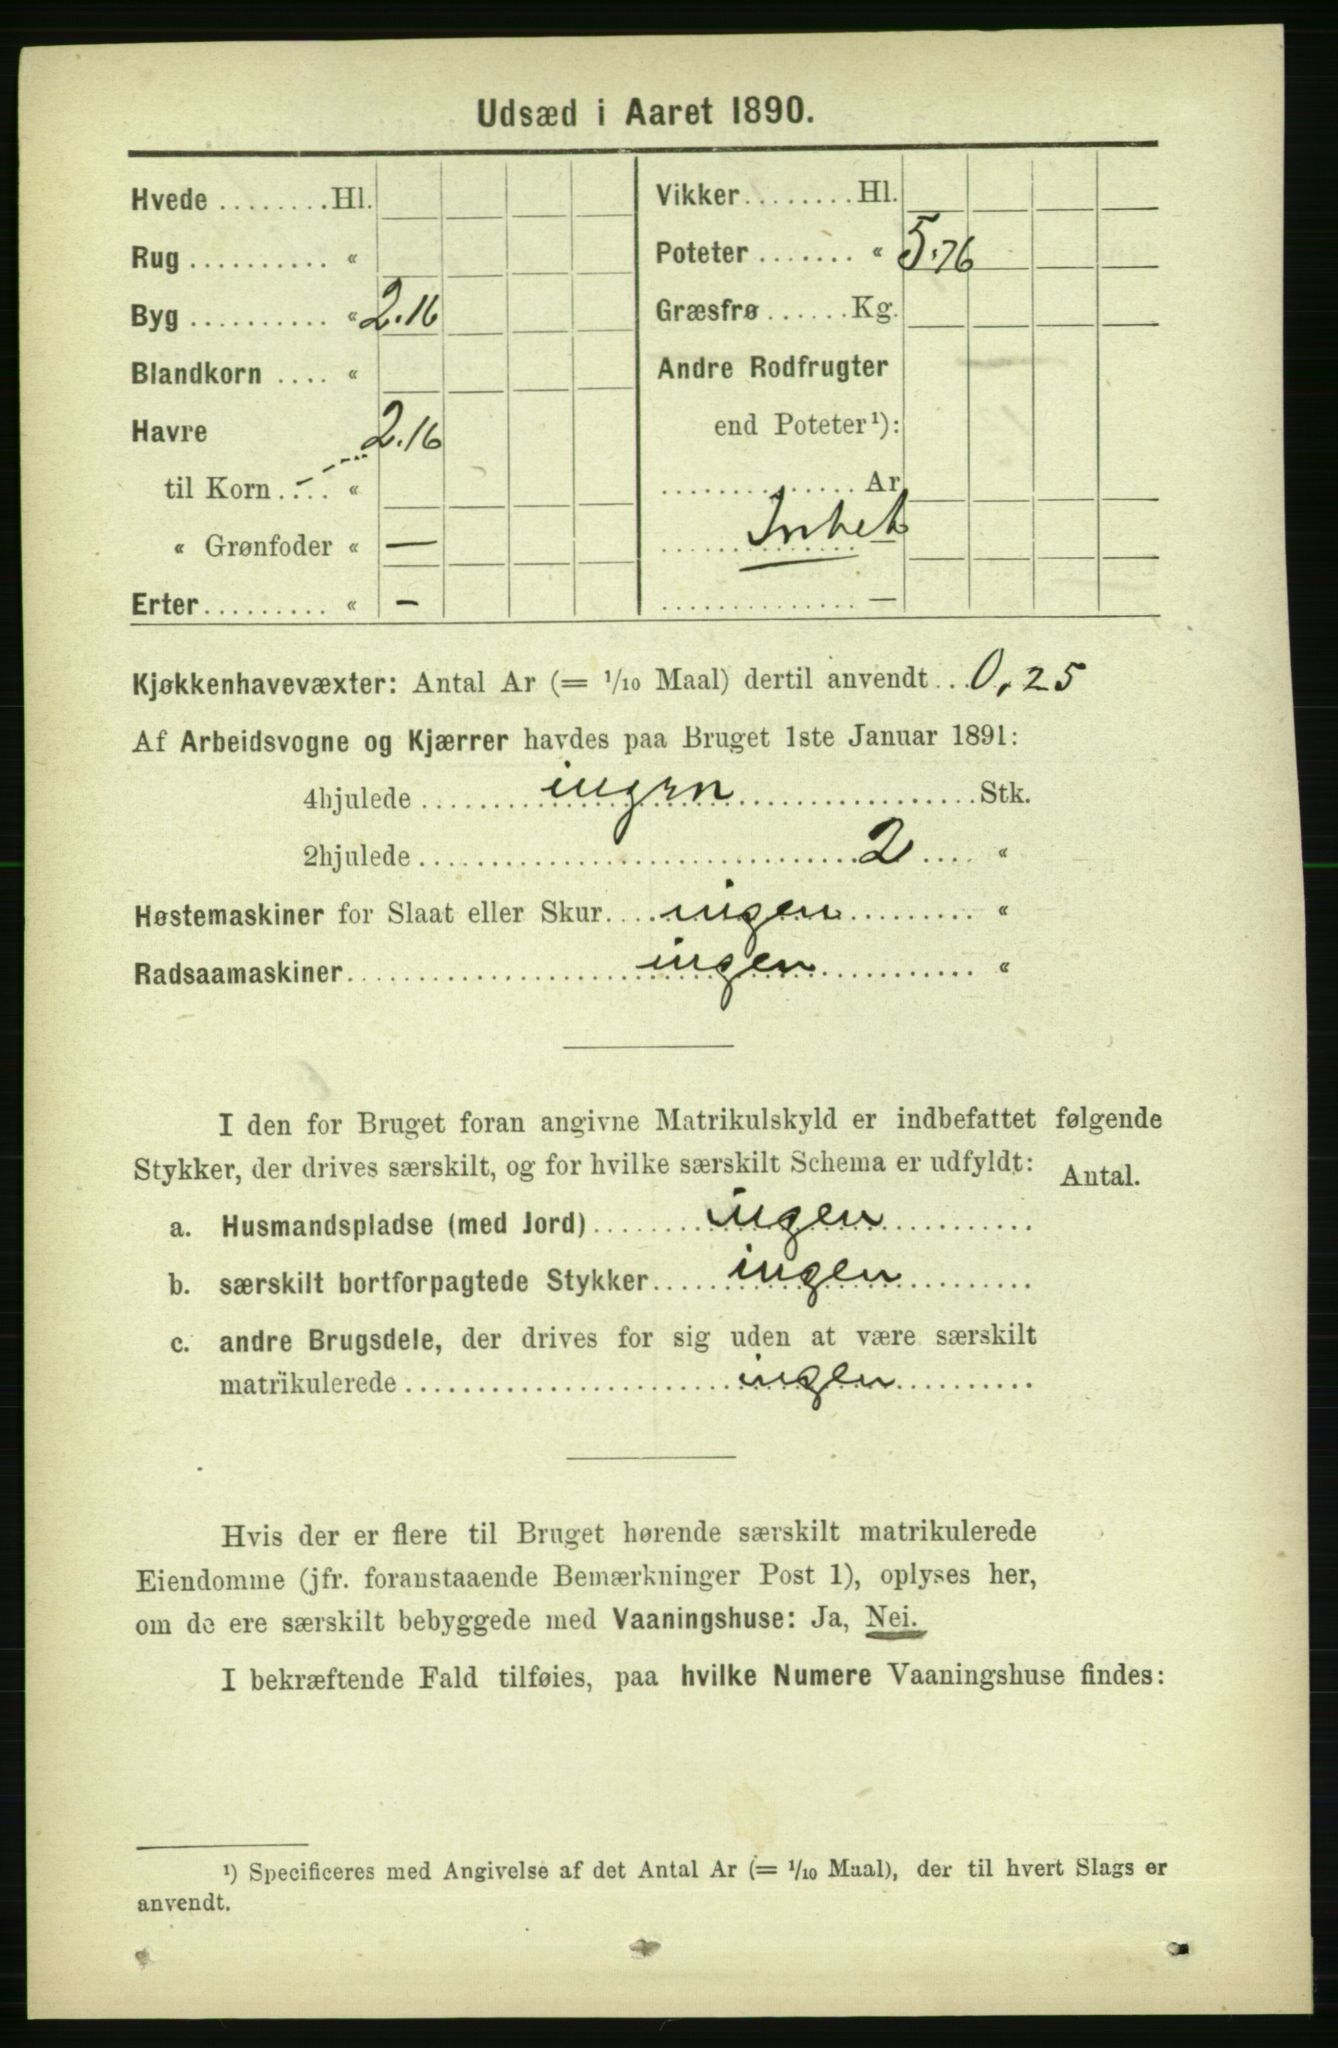 Udsæd i Aaret 1890.
Hvede ........ Hl.
Rug .......... "
Byg .......... " 2.16
Blandkorn .... "
Havre 2.16
til Korn .... "
" Grønfoder " —
Erter ......... " –
Vikker ........ Hl.
Poteter ....... " 5.76
Græsfrø ...... Kg.
Andre Rodfrugter
end Poteter¹):
.............. Ar
.............. Intet
.............. —
Kjøkkenhavevæxter: Antal Ar (= 1/10 Maal) dertil anvendt .. 0,25
Af Arbeidsvogne og Kjærrer havdes paa Bruget 1ste Januar 1891:
4hjulede ........ ingen ........ Stk.
2hjulede ........ 2 .... "
Høstemaskiner for Slaat eller Skur .... ingen ........ "
Radsaamaskiner ........ ingen ........ "
I den for Bruget foran angivne Matrikulskyld er indbefattet følgende
Stykker, der drives særskilt, og for hvilke særskilt Schema er udfyldt: Antal.
a. Husmandspladse (med Jord) ........ ingen ........
b. særskilt bortforpagtede Stykker ..... ingen ........
c. andre Brugsdele, der drives for sig uden at være særskilt
matrikulerede ........ ingen ........
Hvis der er flere til Bruget hørende særskilt matrikulerede
Eiendomme (jfr. foranstaaende Bemærkninger Post 1), oplyses her,
om de ere særskilt bebyggede med Vaaningshuse: Ja, Nei.
I bekræftende Fald tilføies, paa hvilke Numere Vaaningshuse findes:
¹) Specificeres med Angivelse af det Antal Ar (= 1/10 Maal), der til hvert Slags er
anvendt.